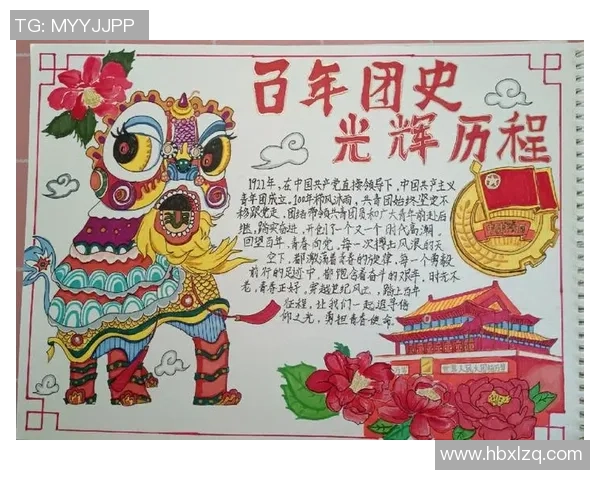 TG: MYYJJPP
百年团史
光辉历程
1922年，在中国共产党直接领导下，中国共产主义
青年团成立。100年栉风沐雨，共青团始终坚定不
移跟党走，团结带领共青团员和广大青年前赴后
继、踏实奋进，开创了一个又一个时代高潮。
回望百年，青春向党，每一次搏击风浪的天
空下，都激荡着青春的旋律，每一个勇毅
前行的足迹中，都饱含着奋斗的艰辛，时光不
老，青春正好，穿越世纪风云，踏上百年
征程，让我们一起追寻信
仰之光，勇担青春使命。
世界人民大团结万岁
www.hbxlzq.com